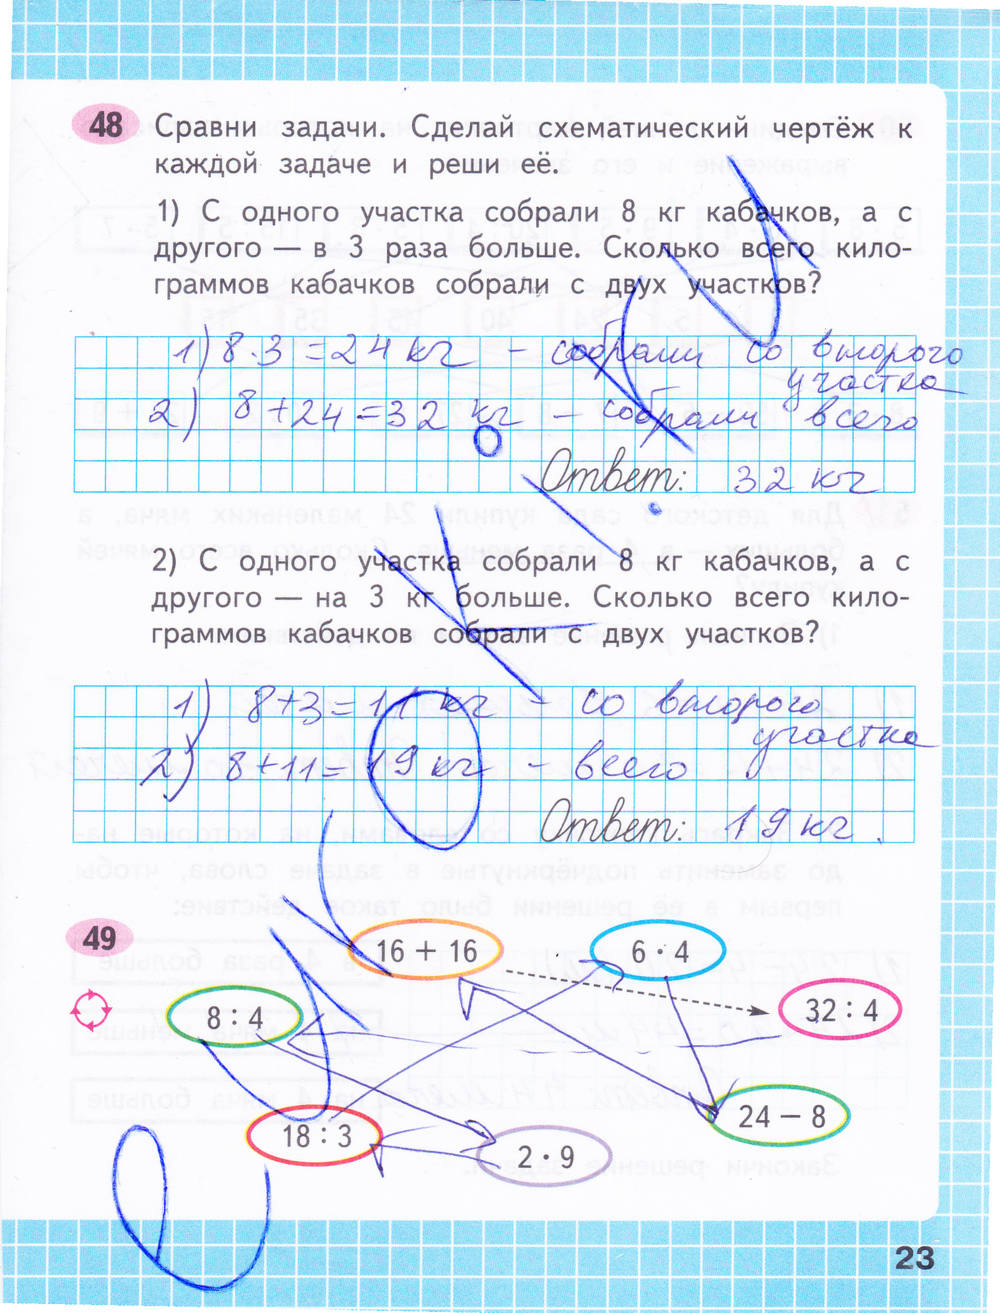 48 Сравни задачи. Сделай схематический чертёж к
каждой задаче и реши её.
1) С одного участка собрали 8 кг кабачков, а с
другого — в 3 раза больше. Сколько всего кило-
граммов кабачков собрали с двух участков?
1) 8·3=24 кг - собрали со второго
участка
2) 8+24=32 кг - собрали всего
Ответ: 32 кг
2) С одного участка собрали 8 кг кабачков, а с
другого — на 3 кг больше. Сколько всего кило-
граммов кабачков собрали с двух участков?
1) 8+3=11 кг - со второго
участка
2) 8+11=19 кг - всего
Ответ: 19 кг.
49
16 + 16
6 · 4
8 : 4
32 : 4
18 : 3
24 − 8
2 · 9
23